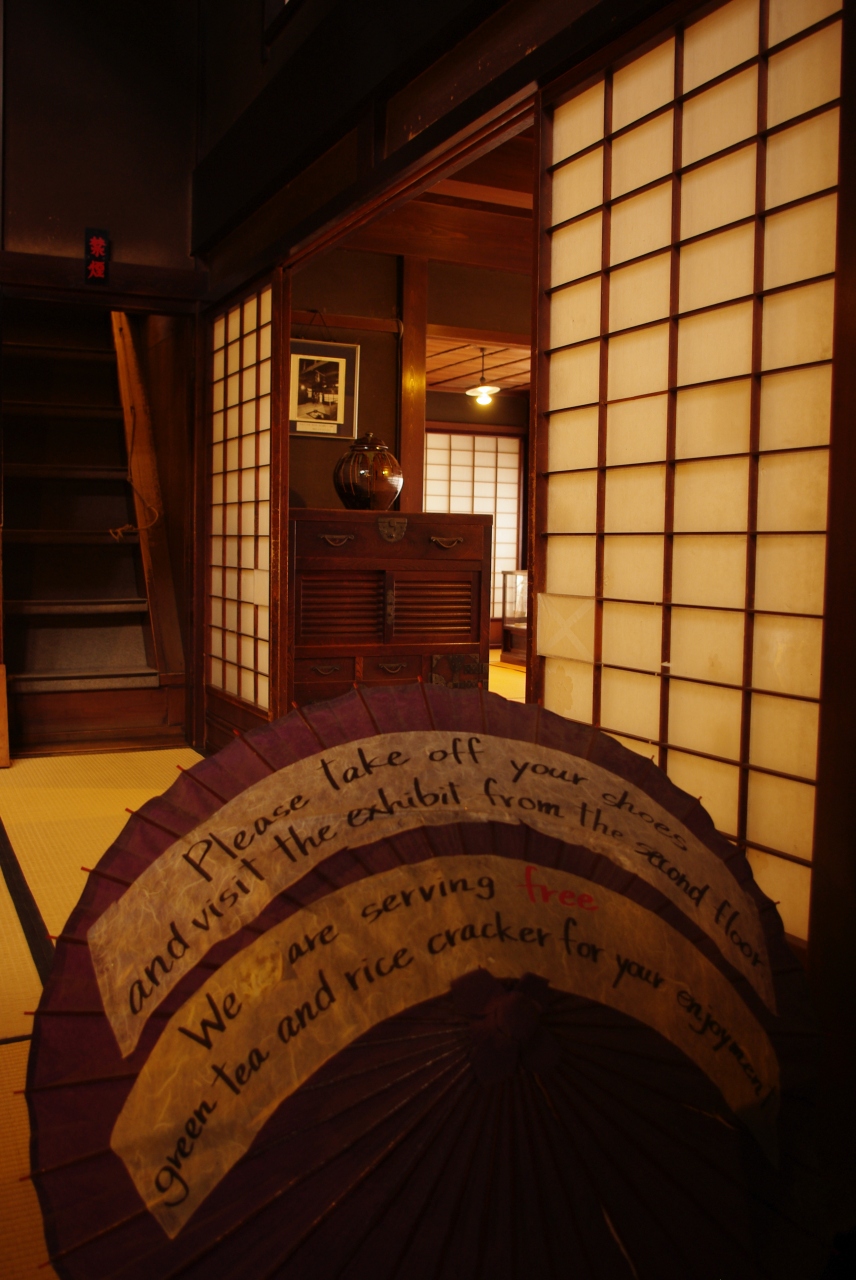 禁煙
Please take off your shoes
and visit the exhibit from the second floor
We are serving free
green tea and rice cracker for your enjoyment